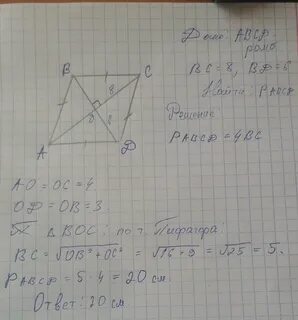 Дано: ABCD
ромб
BC=8, BD=6
Найти: PABCD
Решение:
PABCD=4BC
B
C
8
8
A
D
AO=OC=4
OD=OB=3.
△BOC: по т. Пифагора:
BC=√OB²+OC² = √16+9 = √25 = 5.
PABCD = 5·4=20 см.
Ответ: 20 см.